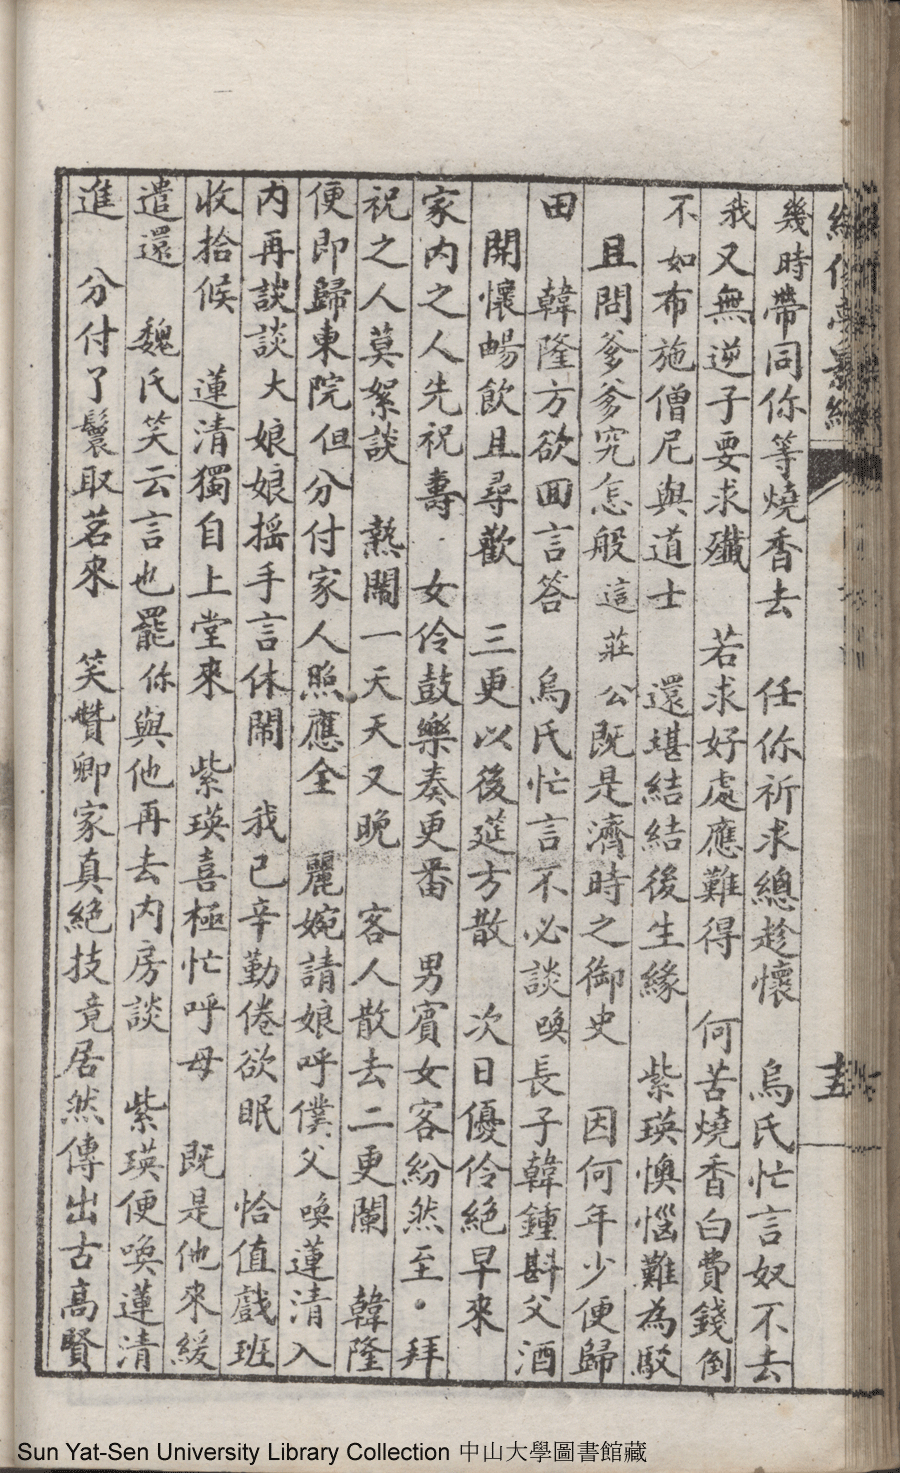 幾時帶同你等燒香去　任你祈求總趁懷　烏氏忙言奴不去
我又無逆子要求殲　若求好處應難得　何苦燒香白費錢倒
不如布施僧尼與道士　還堪結結後生緣　紫瑛懊惱難為駁
且問爹爹究怎般這莊公既是濟時之御史　因何年少便歸
田　韓隆方欲回言答　烏氏忙言不必談喚長子韓鍾斟父酒
開懷暢飲且尋歡　三更以後筵方散　次日優伶絕早來
家內之人先祝壽　女伶鼓樂奏更番　男賓女客紛然至　拜
祝之人莫絮談　熱鬧一天天又晚　客人散去二更闌　韓隆
便即歸東院但分付家人照應全　麗婉請娘呼僕父喚蓮清入
內再談談大娘娘搖手言休鬧　我已辛勤倦欲眠　恰值戲班
收拾候　蓮清獨自上堂來　紫瑛喜極忙呼母　既是他來緩
遣還　魏氏笑云言也罷你與他再去內房談　紫瑛便喚蓮清
進　分付了鬟取茗來　笑贊卿家真絕技竟居然傳出古高賢
Sun Yat-Sen University Library Collection 中山大學圖書館藏